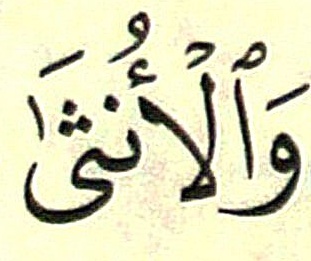 وَٱلۡأُنثَىٰ